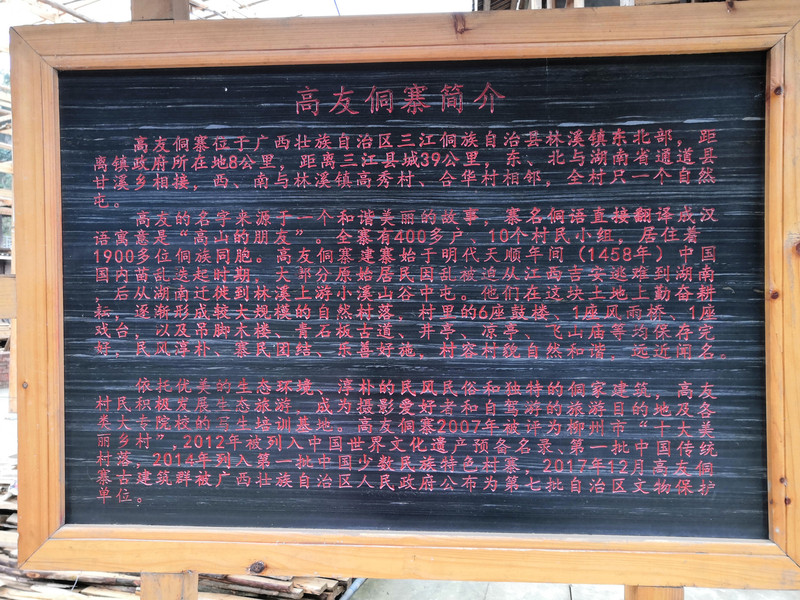 高友侗寨简介
高友侗寨位于广西壮族自治区三江侗族自治县林溪镇东北部，距
离镇政府所在地8公里，距离三江县城39公里，东、北与湖南省通道县
甘溪乡相接，西、南与林溪镇高秀村、合华村相邻，全村只一个自然
屯。
高友的名字来源于一个和谐美丽的故事，寨名侗语直接翻译成汉
语寓意是“高山的朋友”。全寨有400多户、10个村民小组，居住着
1900多位侗族同胞。高友侗寨建寨始于明代天顺年间（1458年）中国
国内苗乱迭起时期，大部分原始居民因乱被迫从江西吉安逃难到湖南
，后从湖南迁徙到林溪上游小溪山谷中屯。他们在这块土地上勤奋耕
耘，逐渐形成较大规模的自然村落，村里的6座鼓楼、1座风雨桥、1座
戏台，以及吊脚木楼、青石板古道、井亭、凉亭、飞山庙等均保存完
好，民风淳朴、寨民团结、乐善好施，村容村貌自然和谐，远近闻名。
依托优美的生态环境、淳朴的民风民俗和独特的侗家建筑，高友
村民积极发展生态旅游，成为摄影爱好者和自驾游的旅游目的地及各
类大专院校的写生培训基地。高友侗寨2007年被评为柳州市“十大美
丽乡村”，2012年被列入中国世界文化遗产预备名录、第一批中国传统
村落，2014年列入第一批中国少数民族特色村寨，2017年12月高友侗
寨古建筑群被广西壮族自治区人民政府公布为第七批自治区文物保护
单位。